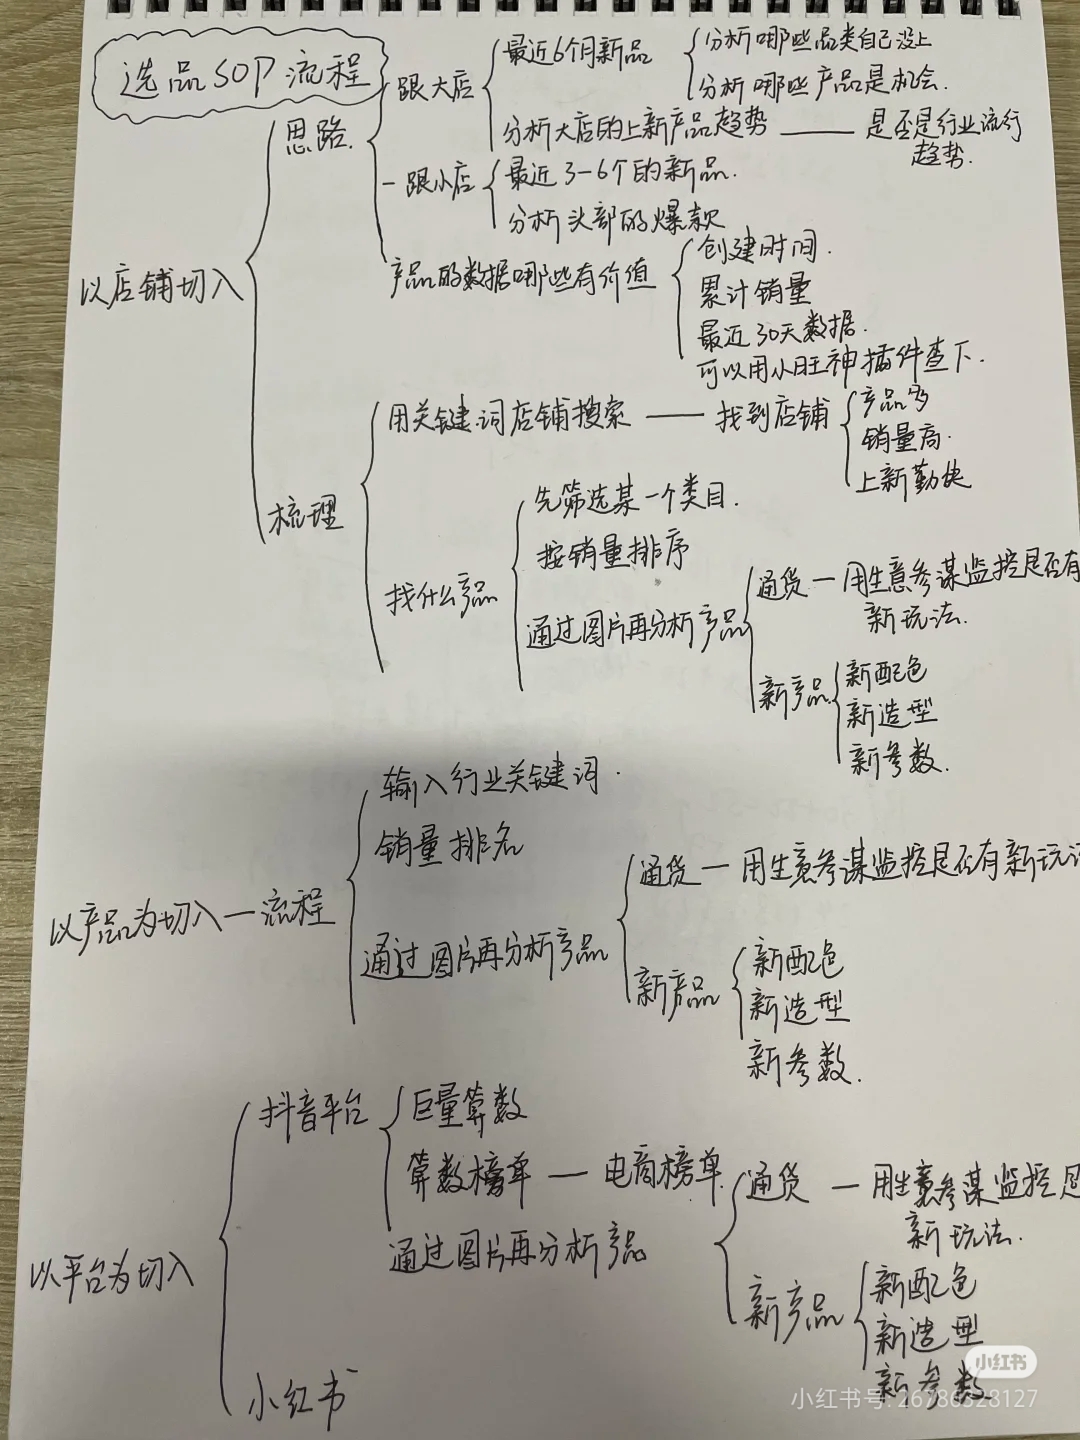 选品SOP流程
以店铺切入
思路.
跟大店
最近6个月新品
分析哪些品类自己没上
分析哪些产品是机会.
分析大店的上新产品趋势 —— 是否是行业流行
趋势.
跟小店
最近3-6个的新品.
分析头部的爆款
产品的数据哪些有价值
创建时间.
累计销量
最近30天数据.
可以用小旺神插件查下.
梳理
用关键词店铺搜索 —— 找到店铺
产品多
销量高.
上新勤快
找什么产品
先筛选某一个类目.
按销量排序
通过图片再分析产品
通货 — 用生意参谋监控是否有
新玩法.
新产品
新配色
新造型
新参数.
以产品为切入 — 流程
输入行业关键词.
销量排名
通过图片再分析产品
通货 — 用生意参谋监控是否有新玩法
新产品
新配色
新造型
新参数.
以平台为切入
抖音平台
巨量算数
算数榜单 — 电商榜单
通过图片再分析产品
通货 — 用生意参谋监控是
新玩法.
新产品
新配色
新造型
新参数
小红书
小红书
小红书号: 26786328127